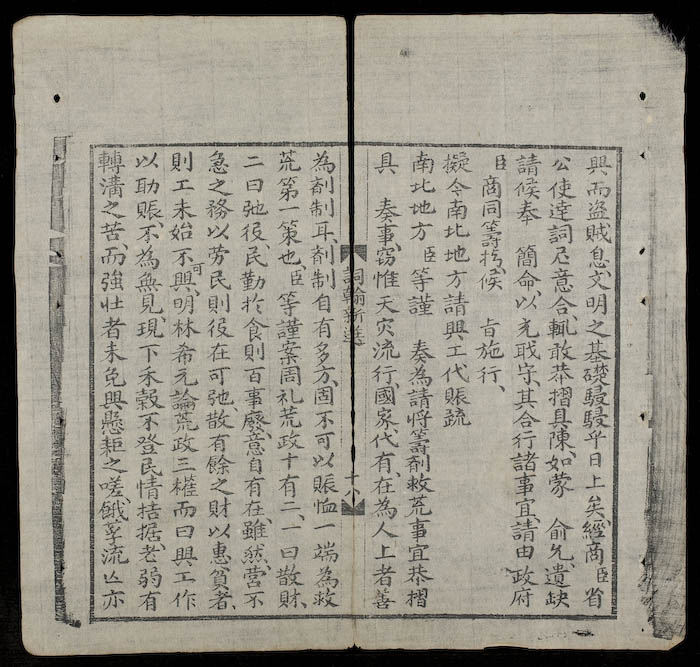 興而盜賊息、文明之基礎駸駸乎日上矣、經商臣省
公使達詞尼意合、輒敢恭摺具陳、如蒙 俞允、遺缺
請候奉 簡命、以充戝守、其合行諸事宜、請由政府
臣商同籌拷、候 旨施行、
擬令南北地方請興工代賑疏
南北地方臣等謹 奏為請將籌劑救荒事宜恭摺
具 奏事、竊惟天灾流行、國家代有、在為人上者善
詞翰新選 十八
為劑制耳、劑制自有多方、固不可以賑恤一端為救
荒第一策也、臣等謹案周礼荒政十有二、一曰散財、
二曰弛役、民勤於食、則百事廢、意自有在、雖然、營不
急之務以勞民、則役在可弛、散有餘之財以惠貧者、
則工未始不可興、明林希元論荒政三權、而曰興工作
以助賑、不為無見、現下禾穀不登、民情拮据、老弱有
轉溝之苦、而強壯者未免興懸耟之嗟、餓莩流亾、亦